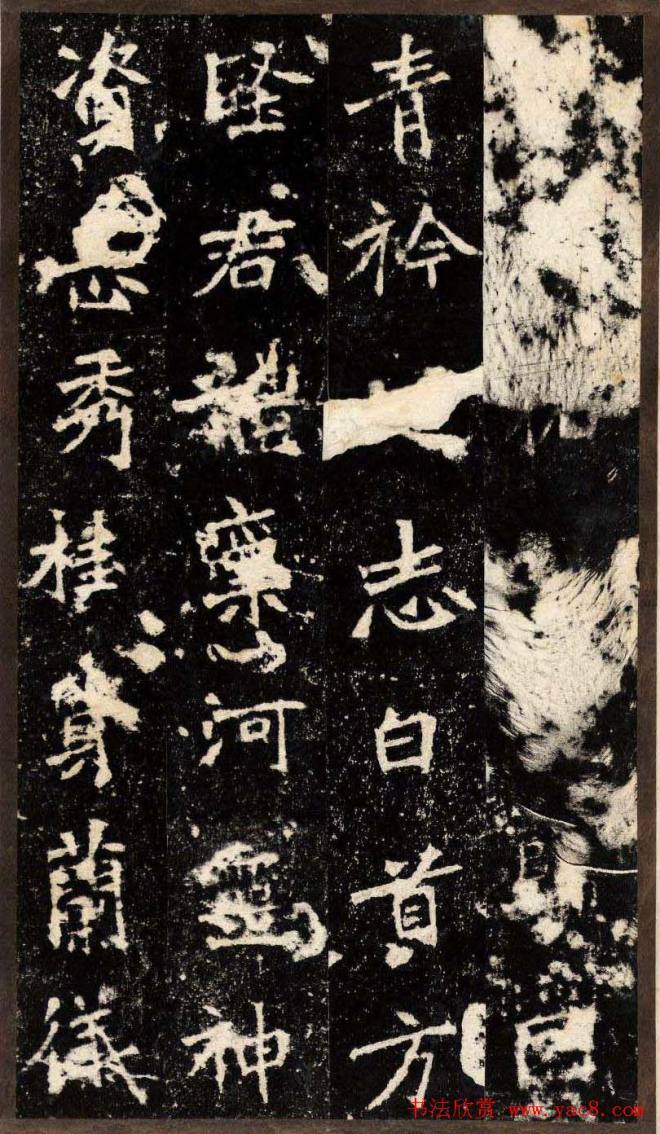 青衿一志白首方
堅君體禀河靈神
資岳秀桂質蘭儀
书法欣赏 www.yac8.com